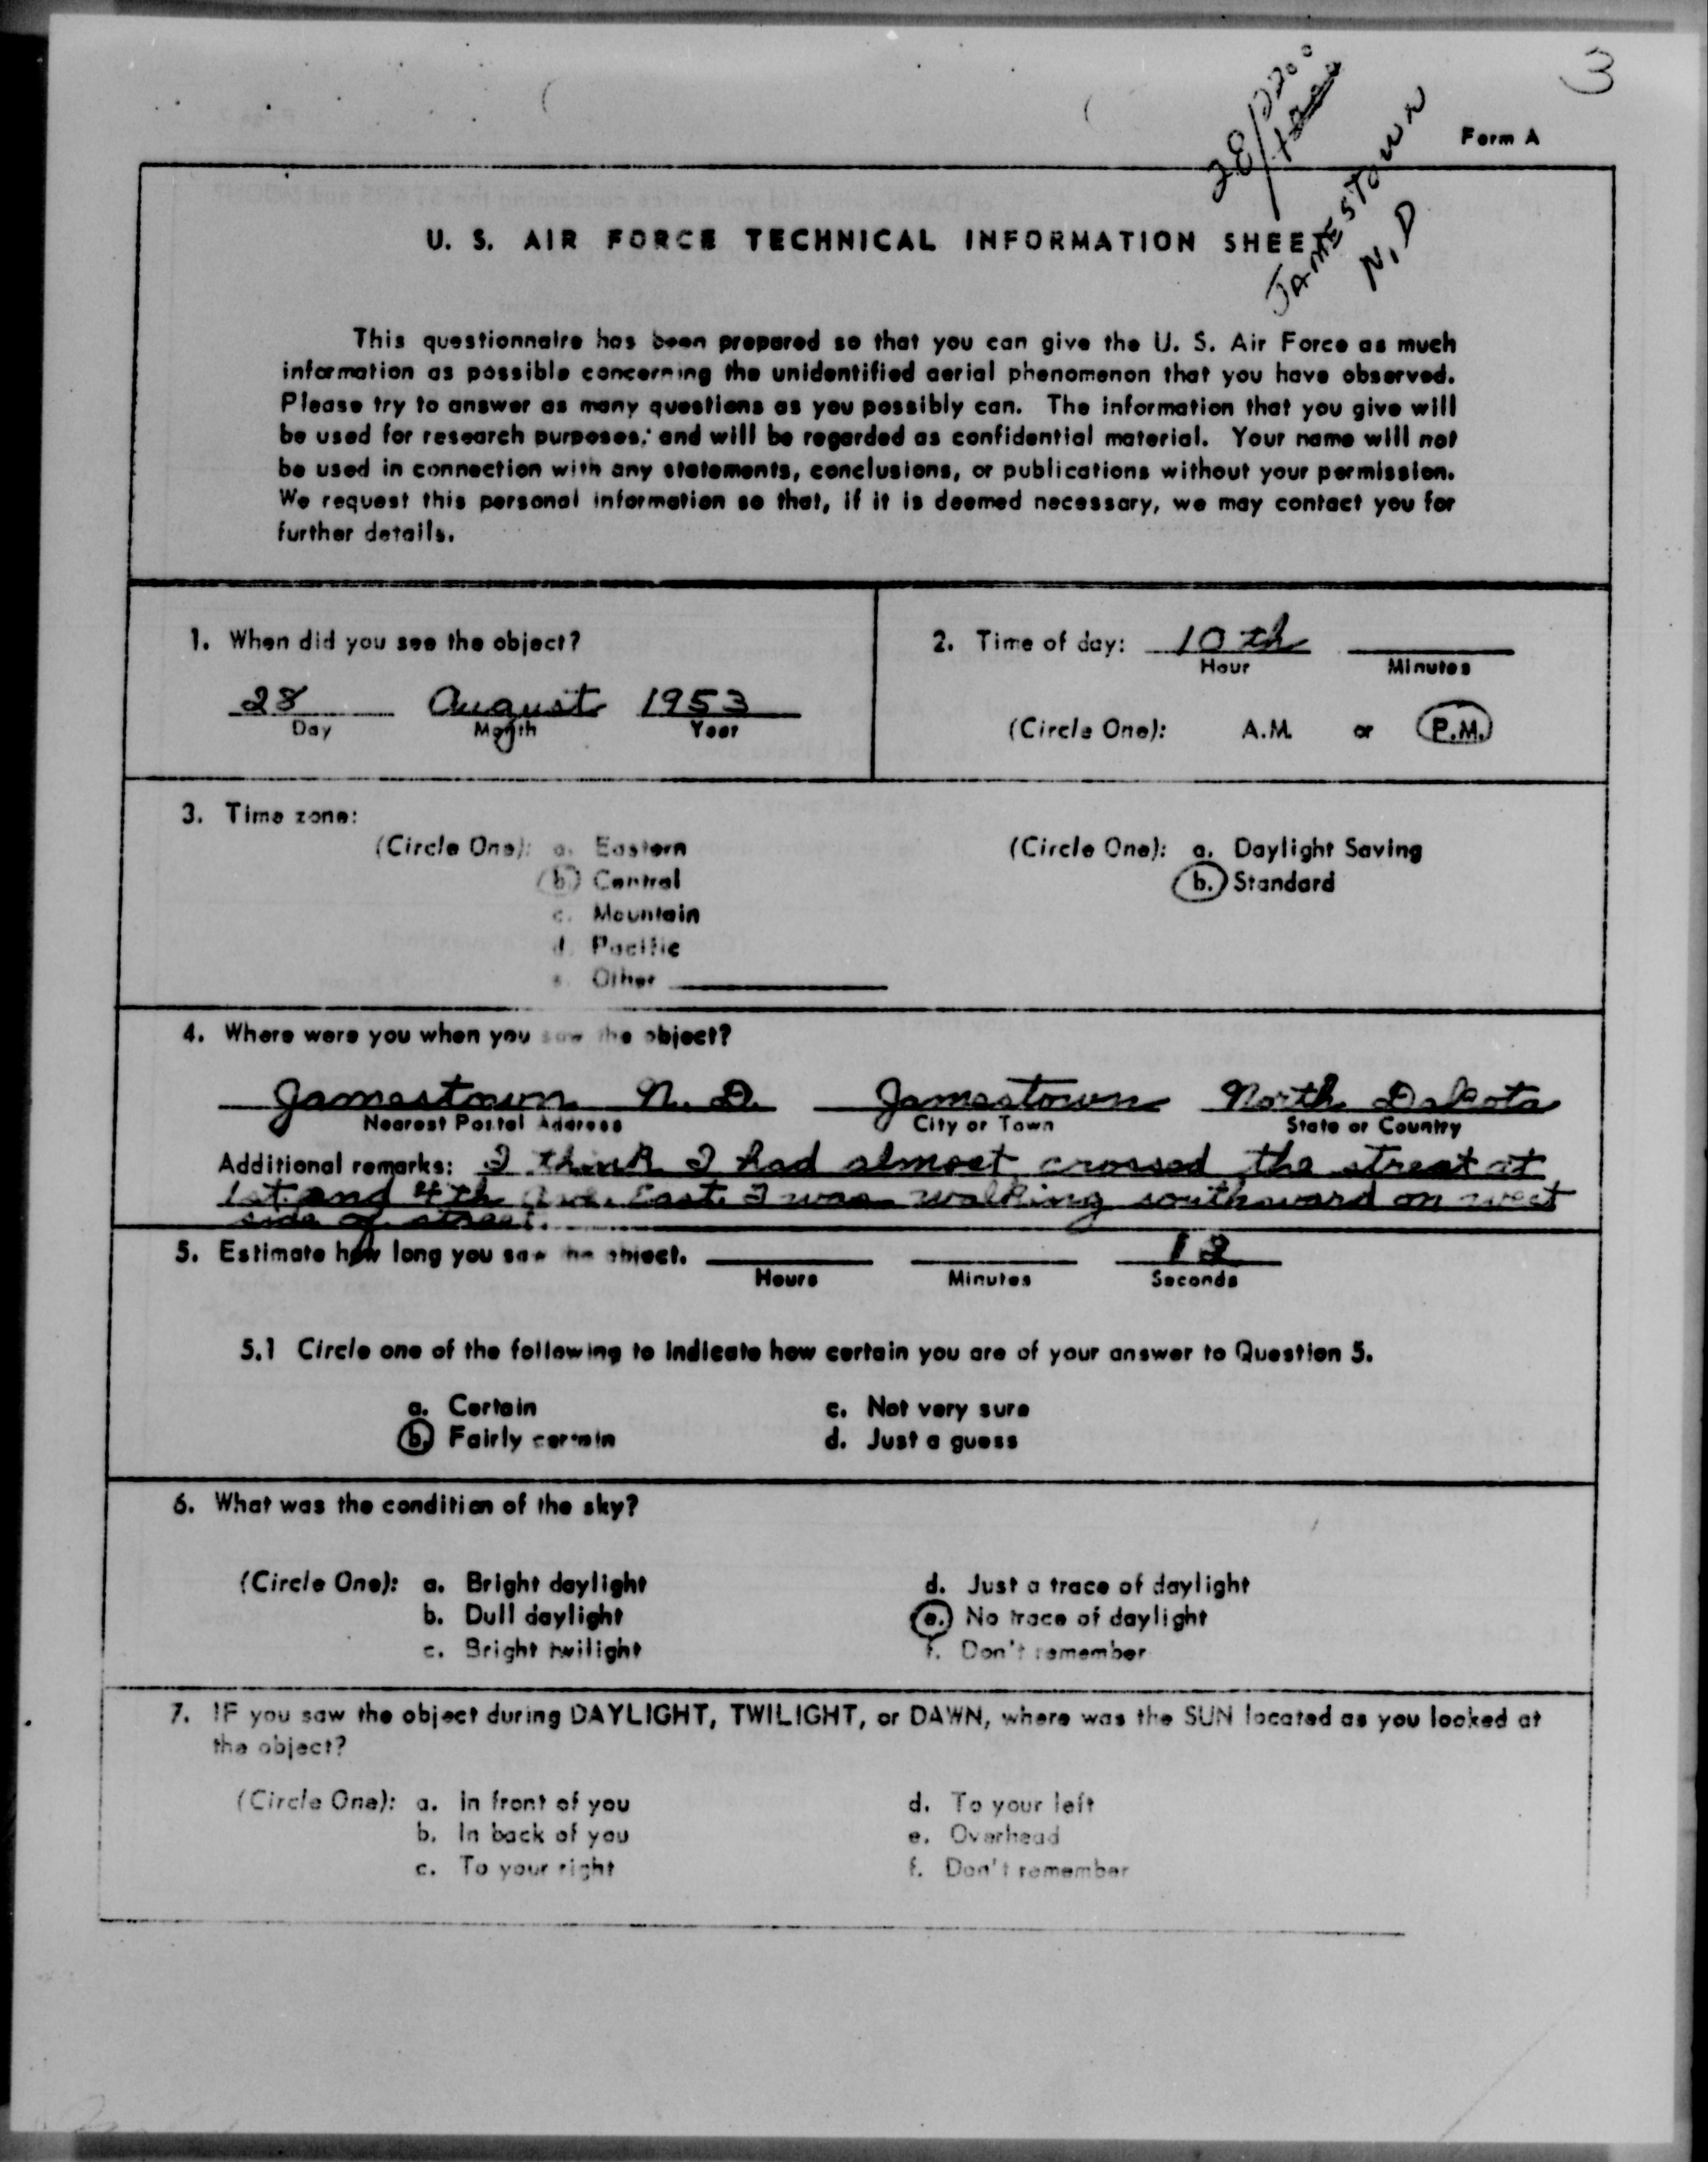 3
28/2200
JAMESTOWN
N.D
Form A
U. S. AIR FORCE TECHNICAL INFORMATION SHEET
This questionnaire has been prepared so that you can give the U. S. Air Force as much
information as possible concerning the unidentified aerial phenomenon that you have observed.
Please try to answer as many questions as you possibly can. The information that you give will
be used for research purposes, and will be regarded as confidential material. Your name will not
be used in connection with any statements, conclusions, or publications without your permission.
We request this personal information so that, if it is deemed necessary, we may contact you for
further details.
1. When did you see the object?
28 August 1953
Day Month Year
2. Time of day: 10 th
Hour Minutes
(Circle One): A.M. or P.M.
3. Time zone:
(Circle One): a. Eastern
b. Central
c. Mountain
d. Pacific
e. Other
(Circle One): a. Daylight Saving
b. Standard
4. Where were you when you saw the object?
Jamestown N. D. Jamestown North Dakota
Nearest Postal Address City or Town State or Country
Additional remarks: I think I had almost crossed the street at
1st and 4th Ave. East. I was walking southward on west
side of street.
5. Estimate how long you saw the object. 12
Hours Minutes Seconds
5.1 Circle one of the following to indicate how certain you are of your answer to Question 5.
a. Certain c. Not very sure
b. Fairly certain d. Just a guess
6. What was the condition of the sky?
(Circle One): a. Bright daylight d. Just a trace of daylight
b. Dull daylight e. No trace of daylight
c. Bright twilight f. Don't remember
7. IF you saw the object during DAYLIGHT, TWILIGHT, or DAWN, where was the SUN located as you looked at
the object?
(Circle One): a. In front of you d. To your left
b. In back of you e. Overhead
c. To your right f. Don't remember